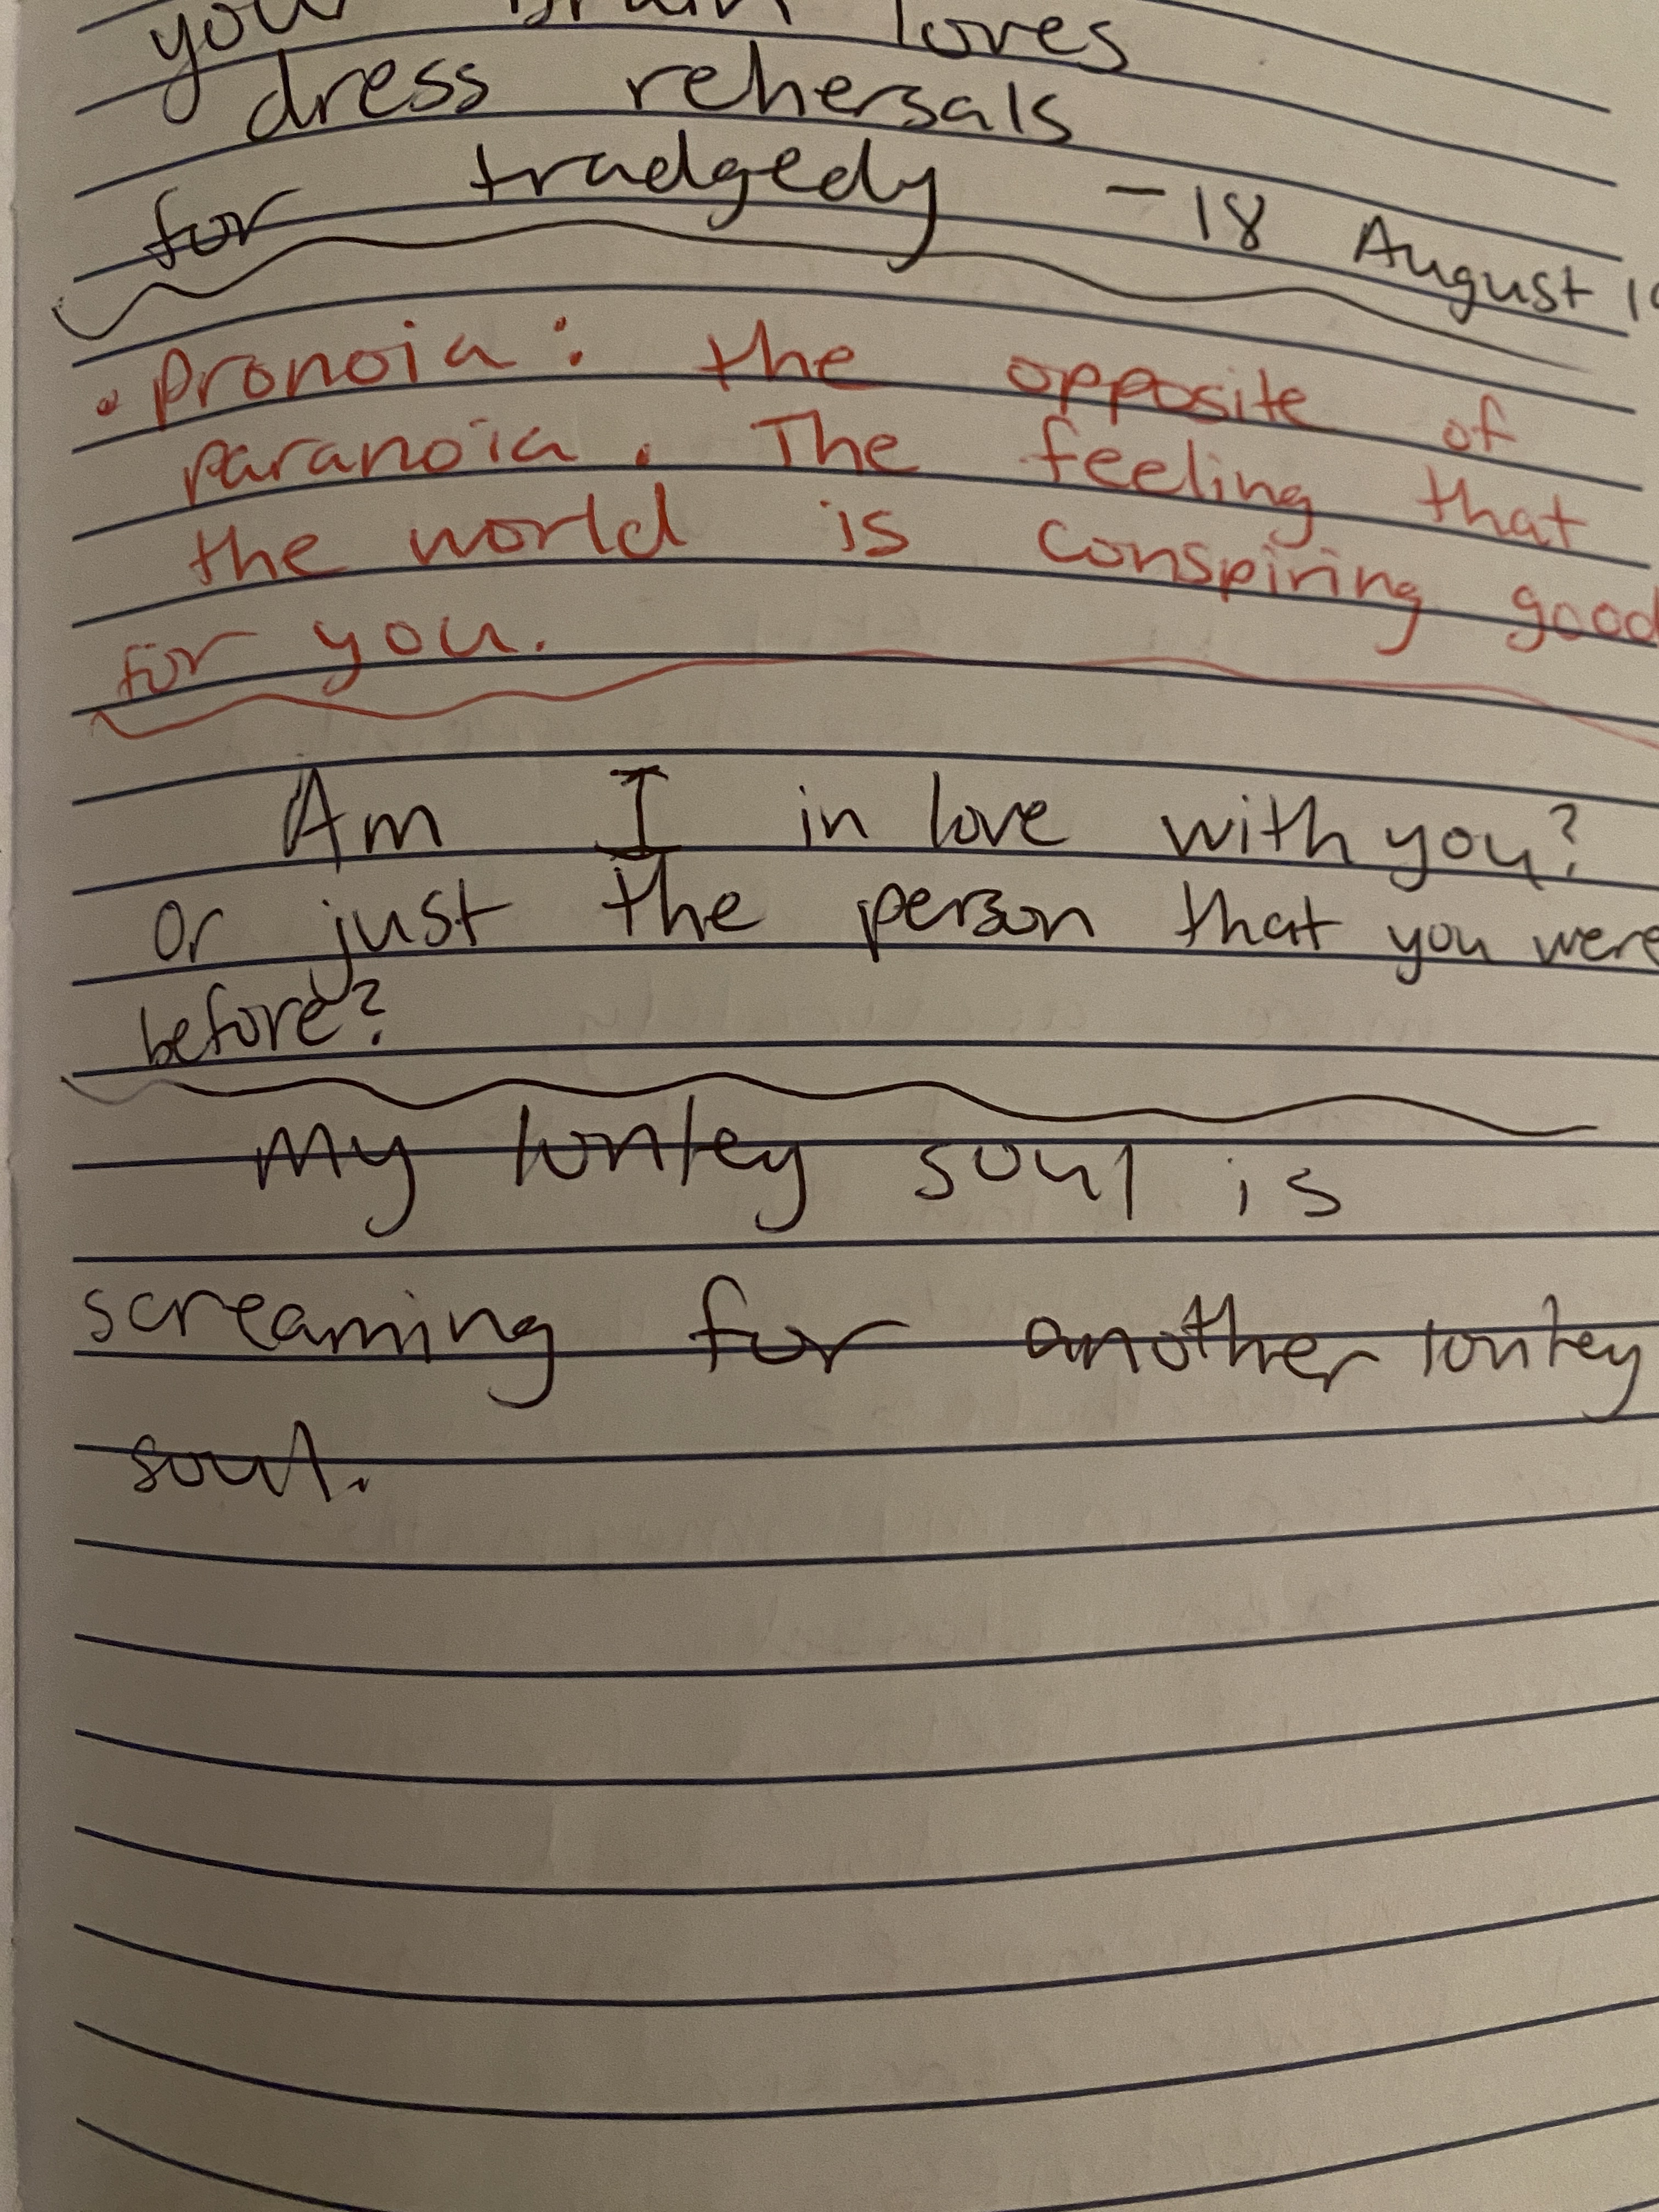 your Brain loves
dress rehersals
for tradgedy - 18 August
• Pronoia: the opposite of
paranoia. The feeling that
the world is conspiring good
for you.
Am I in love with you?
Or just the person that you were
before?
My lonley soul is
screaming for another lonley
soul.